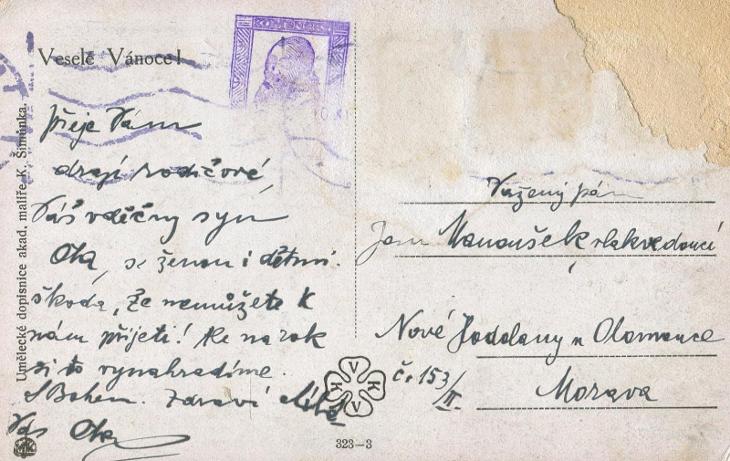 Veselé Vánoce!
přeje Vám
drazí rodičové
Váš vděčný syn
Ota, se ženou i dětmi.
škoda, že nemůžete k
nám přijeti! Ale na rok
si to vynahradíme.
S Bohem. Zdraví
Váš Ota
Umělecké dopisnice akad. malíře K. Šimůnka.
VKVK
323—3
Vážený pán
Jan Hanoušek, vlakvedoucí
Nové Hodolany u Olomouce
č. 153/II.
Morava